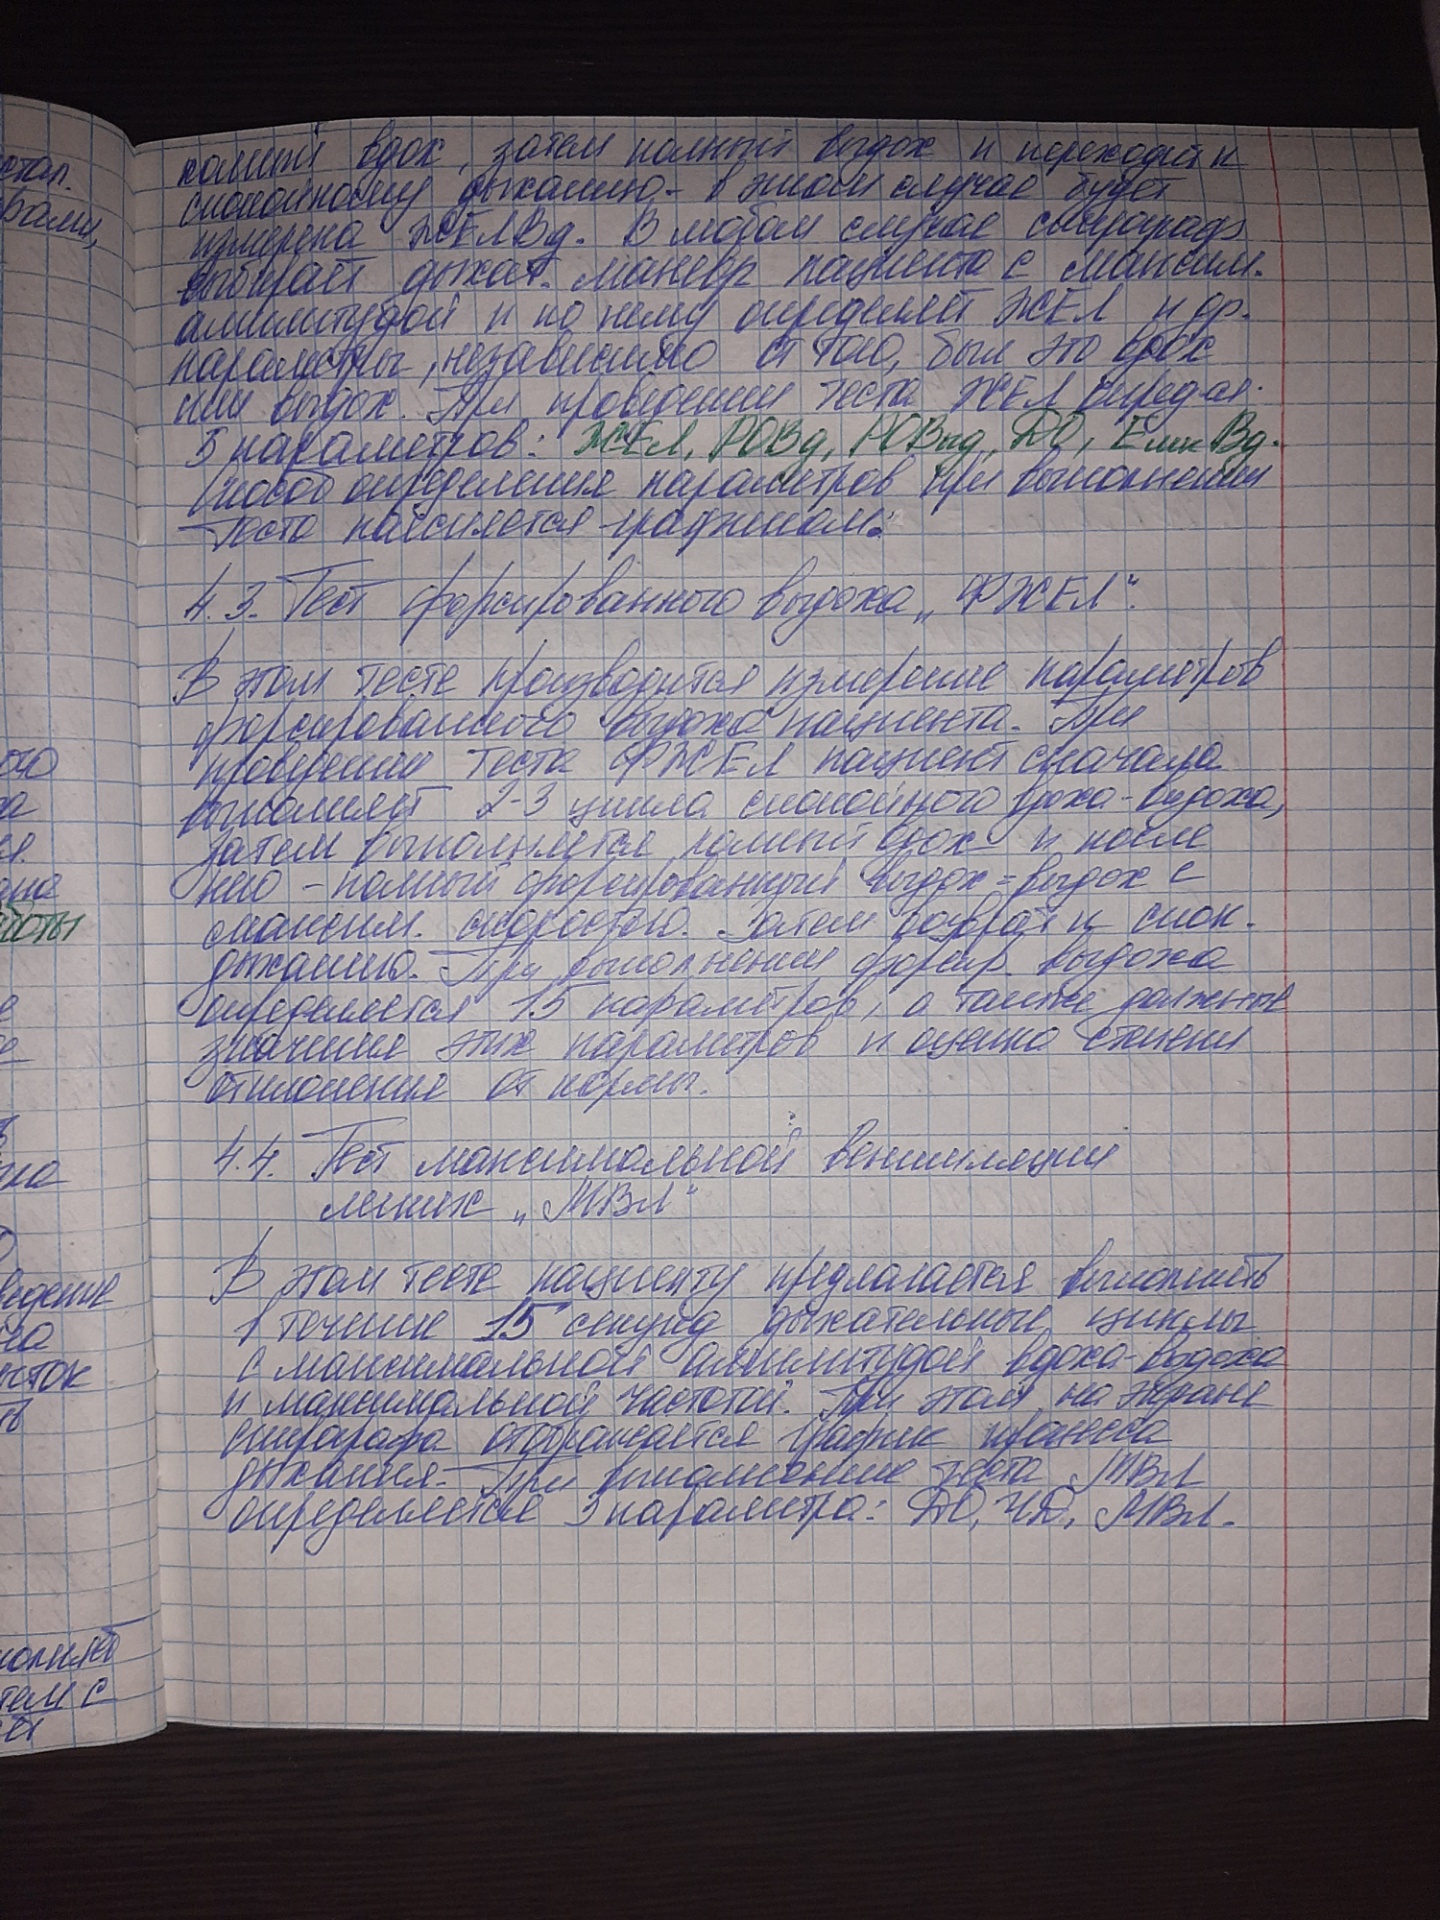 полный вдох, затем полный выдох и переходит к
спокойному дыханию - в этом случае будет
измерена ЖЕЛВд. В любом случае спирограф
выбирает дыхат. маневр пациента с максим.
амплитудой и по нему определяет ЖЕЛ и др.
параметры, независимо от того, был это вдох
или выдох. При проведении теста ЖЕЛ определ.
5 параметров: ЖЕЛ, РОВд, РОВыд, ДО, Емк Вд.
Способ определения параметров при выполнении
теста поясняется графиком:
4.3. Тест форсированного выдоха „ФЖЕЛ".
В этом тесте производится измерение параметров
форсированного выдоха пациента. При
проведении теста ФЖЕЛ пациент сначала
выполняет 2-3 цикла спокойного вдоха-выдоха,
затем выполняется полный вдох и после
него - полный форсированный выдох = выдох с
максим. скоростью. Затем возврат к спок.
дыханию. При выполнении форсир. выдоха
определяется 15 параметров, а также должные
значения этих параметров и оценка степени
отклонения от нормы.
4.4. Тест максимальной вентиляции
легких „МВЛ"
В этом тесте пациенту предлагается выполнить
в течение 15 секунд дыхательные циклы
с максимальной амплитудой вдоха-выдоха
и максимальной частотой. При этом на экране
спирографа отображается график процесса
дыхания. При выполнение теста МВЛ
определяется 3 параметра: ДО, ЧД, МВЛ.
ведение
полняет